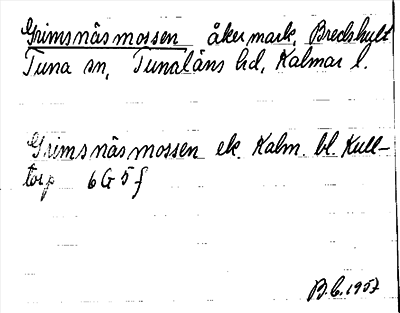 Grimsnäsmossen åkermark, Bredshult
Tuna sn, Tunaläns hd, Kalmar l.
Grimsnäsmossen ek. Kalm. bl. Kull-
torp 6G5f
B.C. 1957